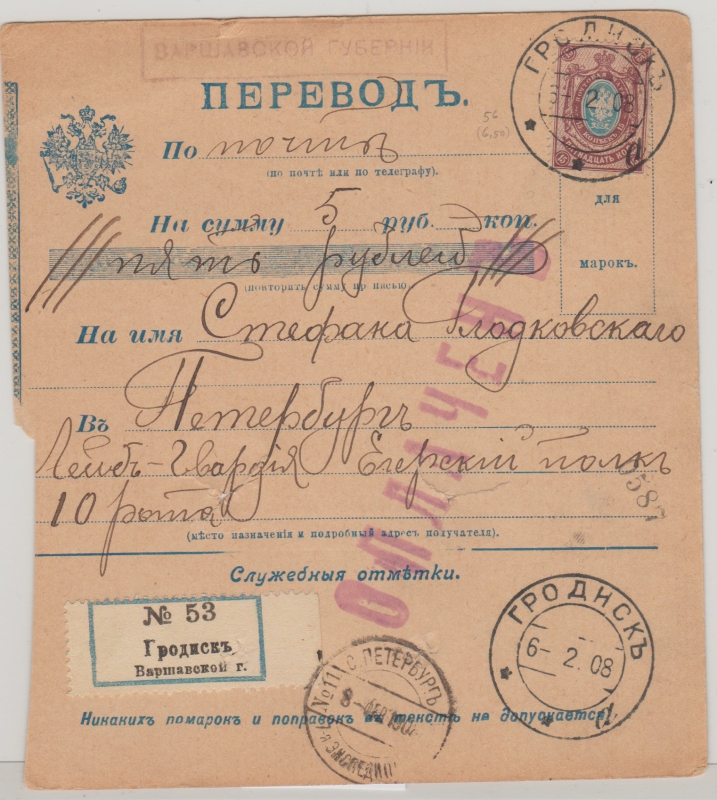 ВАРШАВСКОЙ ГУБЕРНІИ
ПЕРЕВОДЪ.
56
(6,50)
ГРОДИСКЪ
2. 08
а
15
15
По почтѣ
(по почтѣ или по телеграфу).
На сумму 5 руб. — коп.
пять рублей
(повторить сумму прописью).
для
марокъ.
На имя Стефана Глодковскаго
Въ Петербургъ
Лейбъ-Гвардія Егерскій полкъ
10 рота
(мѣсто назначенія и подробный адресъ получателя).
ОПЛАЧЕНЪ
Служебныя отмѣтки.
№ 53
Гродискъ
Варшавской г.
С. ПЕТЕРБУРГЪ
8- ФЕВ 190
ЭКСПЕДИЦ
ГРОДИСКЪ
6- 2. 08
а
Никакихъ помарокъ и поправокъ въ текстѣ не допускается.